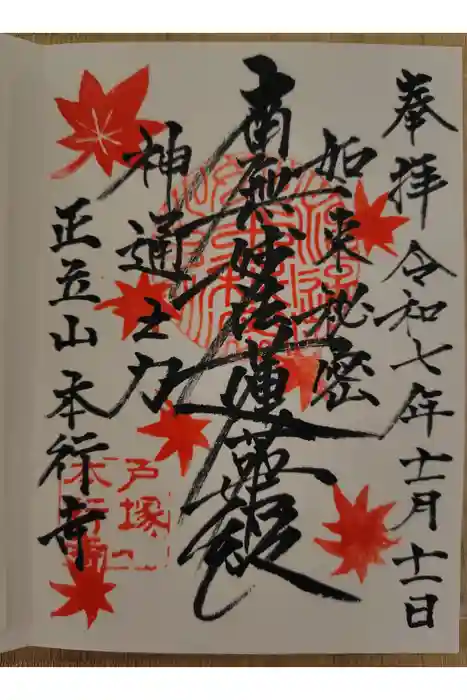 奉拝 令和七年十一月十一日
如来秘密
南無妙法蓮華経
神通之力
正立山 本行寺
戸塚